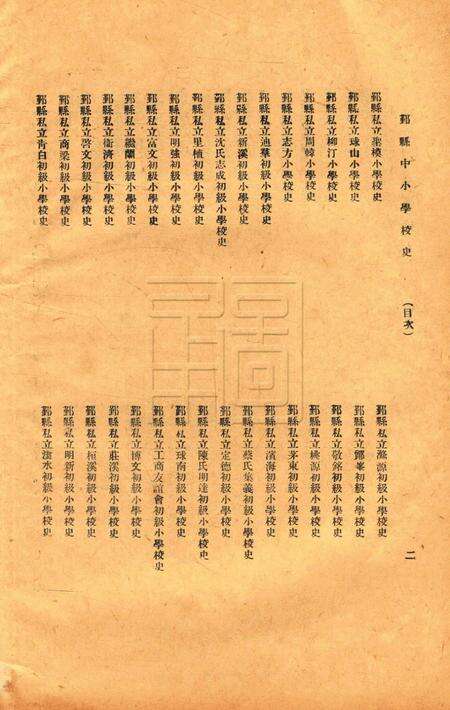 鄞縣中小學校史
（目次）
二
鄞縣私立模小學校史
鄞縣私立球山小學校史
鄞縣私立柳汀小學校史
鄞縣私立周韓小學校史
鄞縣私立志方小學校史
鄞縣私立迪華初級小學校史
鄞縣私立新溪初級小學校史
鄞縣私立沈氏志成初級小學校史
鄞縣私立里樓初級小學校史
鄞縣私立明強初級小學校史
鄞縣私立富文初級小學校史
鄞縣私立蘭初級小學校史
鄞縣私立衞濟初級小學校史
鄞縣私立啓文初級小學校史
鄞縣私立商梁初級小學校史
鄞縣私立青白初級小學校史
鄞縣私立源初級小學校史
鄞縣私立鄮峯初級小學校史
鄞縣私立敬銘初級小學校史
鄞縣私立桃源初級小學校史
鄞縣私立茅東初級小學校史
鄞縣私立濱海初級小學校史
鄞縣私立蔡氏集義初級小學校史
鄞縣私立定德初級小學校史
鄞縣私立陳氏明達初級小學校史
鄞縣私立球南初級小學校史
鄞縣私立工商友誼會初級小學校史
鄞縣私立博文初級小學校史
鄞縣私立莊溪初級小學校史
鄞縣私立桓溪初級小學校史
鄞縣私立明新初級小學校史
鄞縣私立水初級小學校史